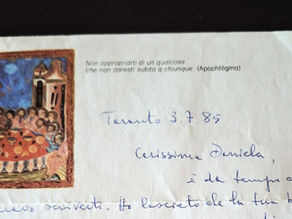 Non appropriarti di un qualcosa
che non daresti subito a chiunque. (Apophtégma)
Taranto 3.7.85
Carissima Daniela,
è da tempo c
scriverti. Ho lasciato che la tua b